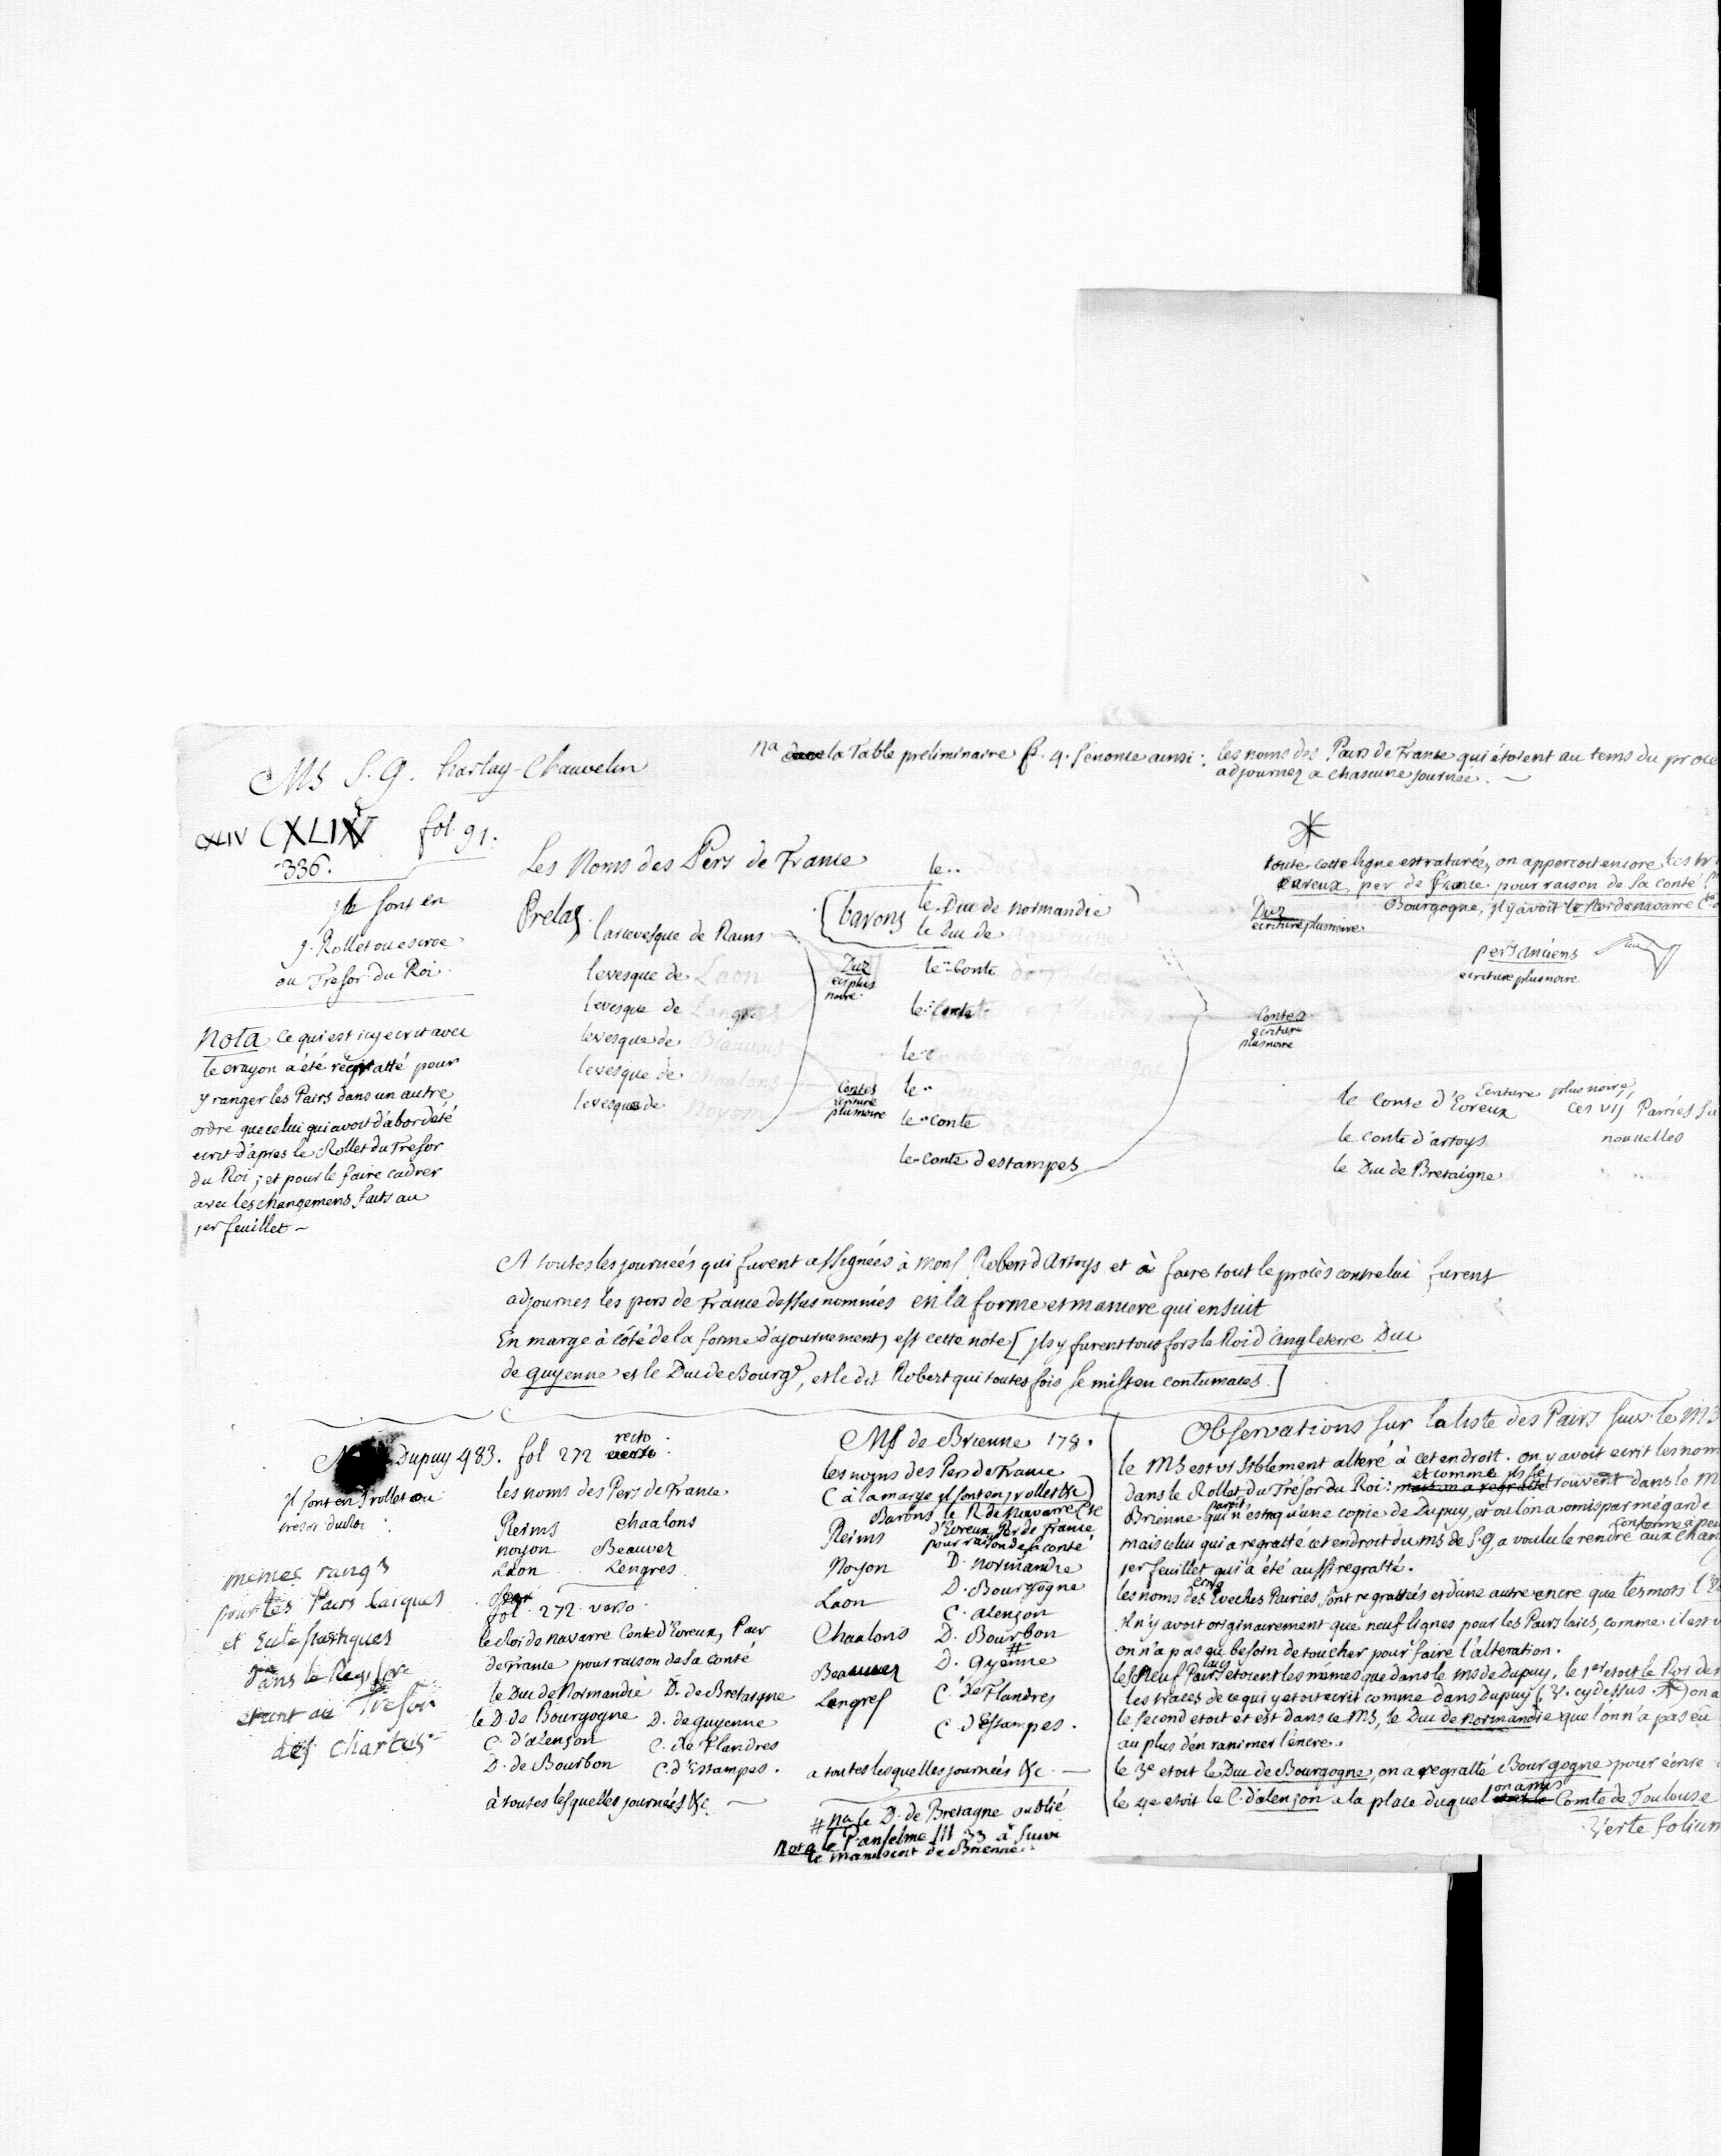 Ms S. G. harlay-Chauvelin
na dans la Table preliminaire f. 4. s'enonce ainsi: les noms des Pairs de France qui étoient au tems du proce
adjournez a chascune journée. ~
CXLIX fol. 91.
336.
jls sont en
j. Rollet ou escroe
au Tresor du Roi
Nota ce qui est icy ecrit avec
le crayon a été regratté pour
y ranger les Pairs dans un autre
ordre que celui qui avoit d'abord été
ecrit d'apres le Rollet du Tresor
du Roi; et pour le faire cadrer
avec les changemens faits au
1er feuillet ~
Les Noms des Pers de France
Prelas
larcevesque de Rains
levesque de Laon
levesque de Langres
levesque de Biauvais
levesque de chaalons
levesque de Noyon
Dux
ecr. plus
noire
Contes
ecriture
plus noire
le..
barons
le Duc de Normandie
le Duc de Aquitaine
le conte de Tholose
le conte de Flandres
le conte de Champaigne
le..
le conte
le conte destampes
toute cette ligne est raturée, on apperçoit encore
evreux, per de france pour raison de sa conté
Bourgogne, jl y avoit le Roi de navarre
Dux
ecriture plus noire
pers anciens
ecriture plus noire
Contes
ecriture
plus noire
Ecriture plus noire
le conte d'Evreux
ces vij Parries
le conte d'artoys
nouuelles
le Duc de Bretaigne
A toutes les journées qui furent assignées à mons Robert d'Artoys et à faire tout le procès contre lui furent
adjournes les pers de France dessus nommés en la forme et maniere qui ensuit
En marge à côté de la forme d'ajournement, est cette note [jls y furent tous fors le Roi d'Angleterre Duc
de guyenne et le Duc de Bourge, et le dit Robert qui toutes fois se mist en contumaces.]
Dupuy 483. fol 272 recto
jl sont en j rollet ou
tresor du Roi
les noms des Pers de France.
Reims chaalons
noyon Beauvez
Laon Lengres
fol. 272 verso
le Roi de navarre Conte d'Evreux, Pair
de France pour raison de sa conté
le Duc de Normandie D. de Bretaigne
le D. de Bourgogne D. de guyenne
C. d'alençon C. de Flandres
D. de Bourbon C. d'Estampes.
à toutes lesquelles journées &c. ~
memes rangs
pour les Pairs laiques
et Eclesiastiques
dans le Registre
etant au Tresor
des chartes
Ms de Brienne 178.
les noms des Pers de France
(à la marge jl sont en j rollet &c)
Barons le R. de Navarre Cte
d'Evreux Per de France
pour raison de sa conté
Reims
Noyon D. Normandie
D. Bourgogne
Laon C. alençon
Chaalons D. Bourbon #
Beauvez D. Gyenne
Lengres C. de Flandres
C. d'Estampes.
a toutes lesquelles journées &c. ~
# na le D. de Bretagne oublié
nota le P. anselme III 33 a suivi
le manuscrit de Brienne.
Observations sur la liste des Pairs suiv. le MS
le MS est visiblement alteré à cet endroit. on y avoit ecrit les nom
dans le Rollet du Tresor du Roi: et comme ils se trouvent dans le M
Brienne qui n'est qu'une copie de Dupuy, et où l'on a omis par mégarde
mais celui qui a regratté cet endroit du ms de S. G. a voulu le rendre conforme aux
1er feuillet qui a été aussi regratté.
les noms des Eveches Pairies, sont regrattés et d'une autre encre que les mots
Il n'y avoit originairement que neuf lignes pour les Pairs laics, comme il est
on n'a pas eu besoin de toucher pour faire l'alteration.
les Neuf Pairs laics etoient les mèmes que dans le ms de Dupuy. le 1er etoit le Roi de
les traces de ce qui y etoit ecrit comme dans Dupuy (V. cy dessus *) on a
le second etoit et est dans le MS, le Duc de Normandie que l'on n'a pas eu
au plus d'en ranimer l'encre.
le 3e etoit le Duc de Bourgogne, on a regratté Bourgogne pour écrire
le 4e etoit le C. d'alençon a la place duquel on a mis Comte de Toulouse
Verte folium